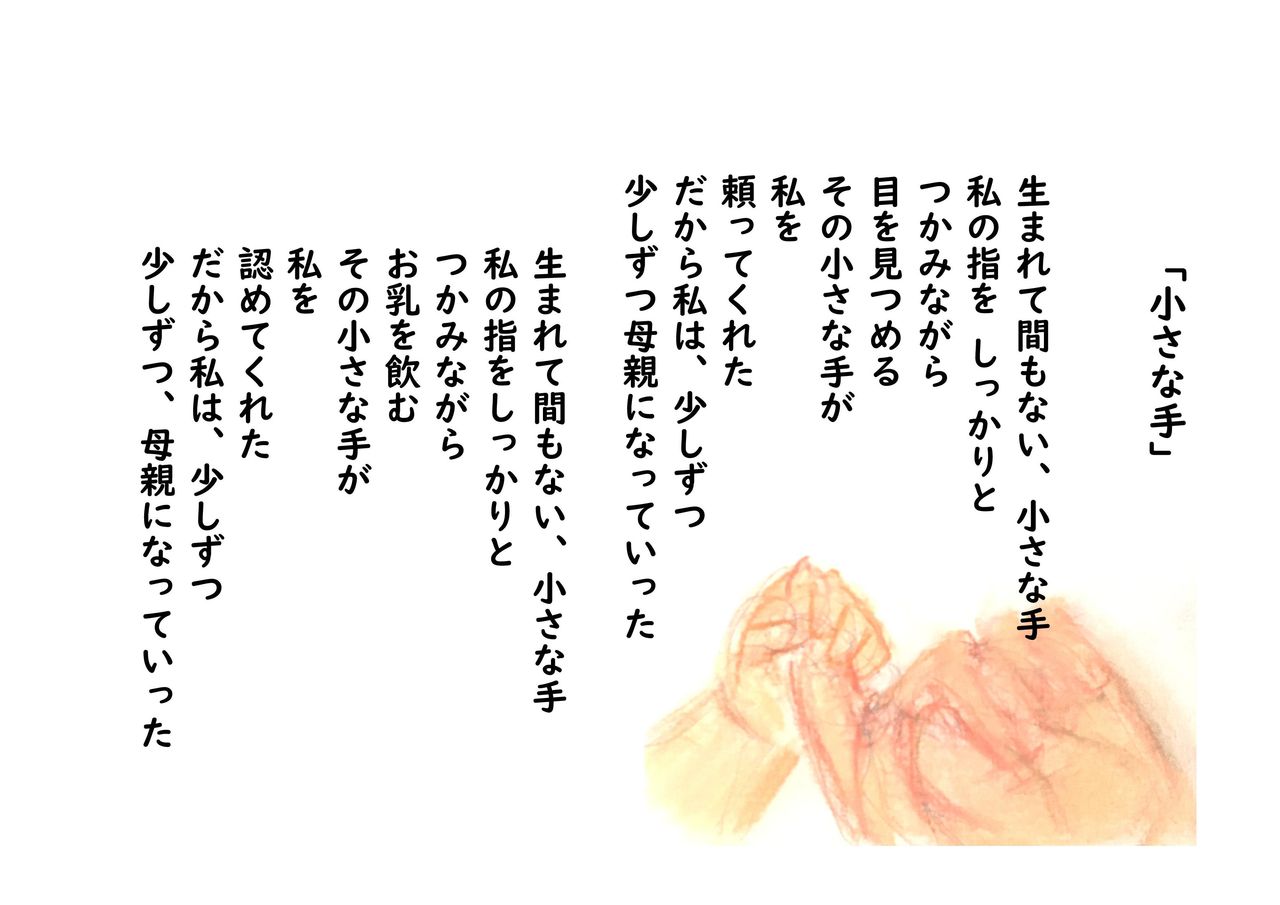 「小さな手」
生まれて間もない、小さな手
私の指を しっかりと
つかみながら
目を見つめる
その小さな手が
私を
頼ってくれた
だから私は、少しずつ
少しずつ母親になっていった
生まれて間もない、小さな手
私の指をしっかりと
つかみながら
お乳を飲む
その小さな手が
私を
認めてくれた
だから私は、少しずつ
少しずつ、母親になっていった